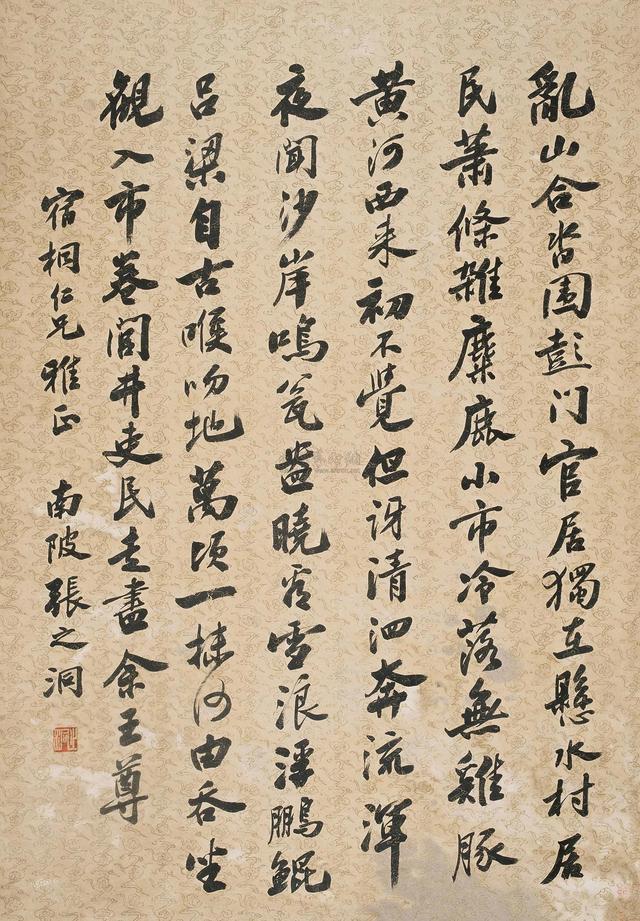 亂山合沓围彭门官居獨在懸水村居
民蕭條雜麋鹿小市冷落無雞豚
黄河西来初不覺但訝清泗奔流渾
夜聞沙岸鳴瓮盎曉看雪浪浮鵬鯤
呂梁自古喉吻地萬頃一抹何由吞坐
觀入市卷闾井吏民走盡余王尊
宿桐仁兄雅正 南陂張之洞